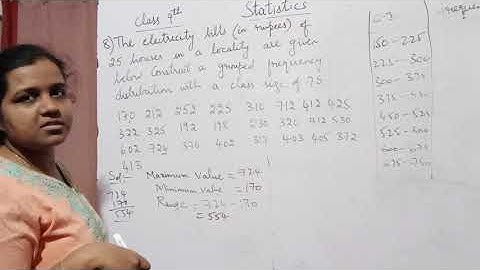 Class 9th Statistics
8) The electricity bills (in rupees) of
25 houses in a locality are given
below construct a grouped frequency
distribution with a class size of 75
170 212 252 225 310 712 412 425
322 325 192 198 230 320 412 530
602 724 370 402 317 403 405 372
413
Sol:- Maximum value = 724
Minimum value = 170
Range = 724 - 170
= 554
724
170
554
150 - 225
225 - 300
300 - 375
450 - 525